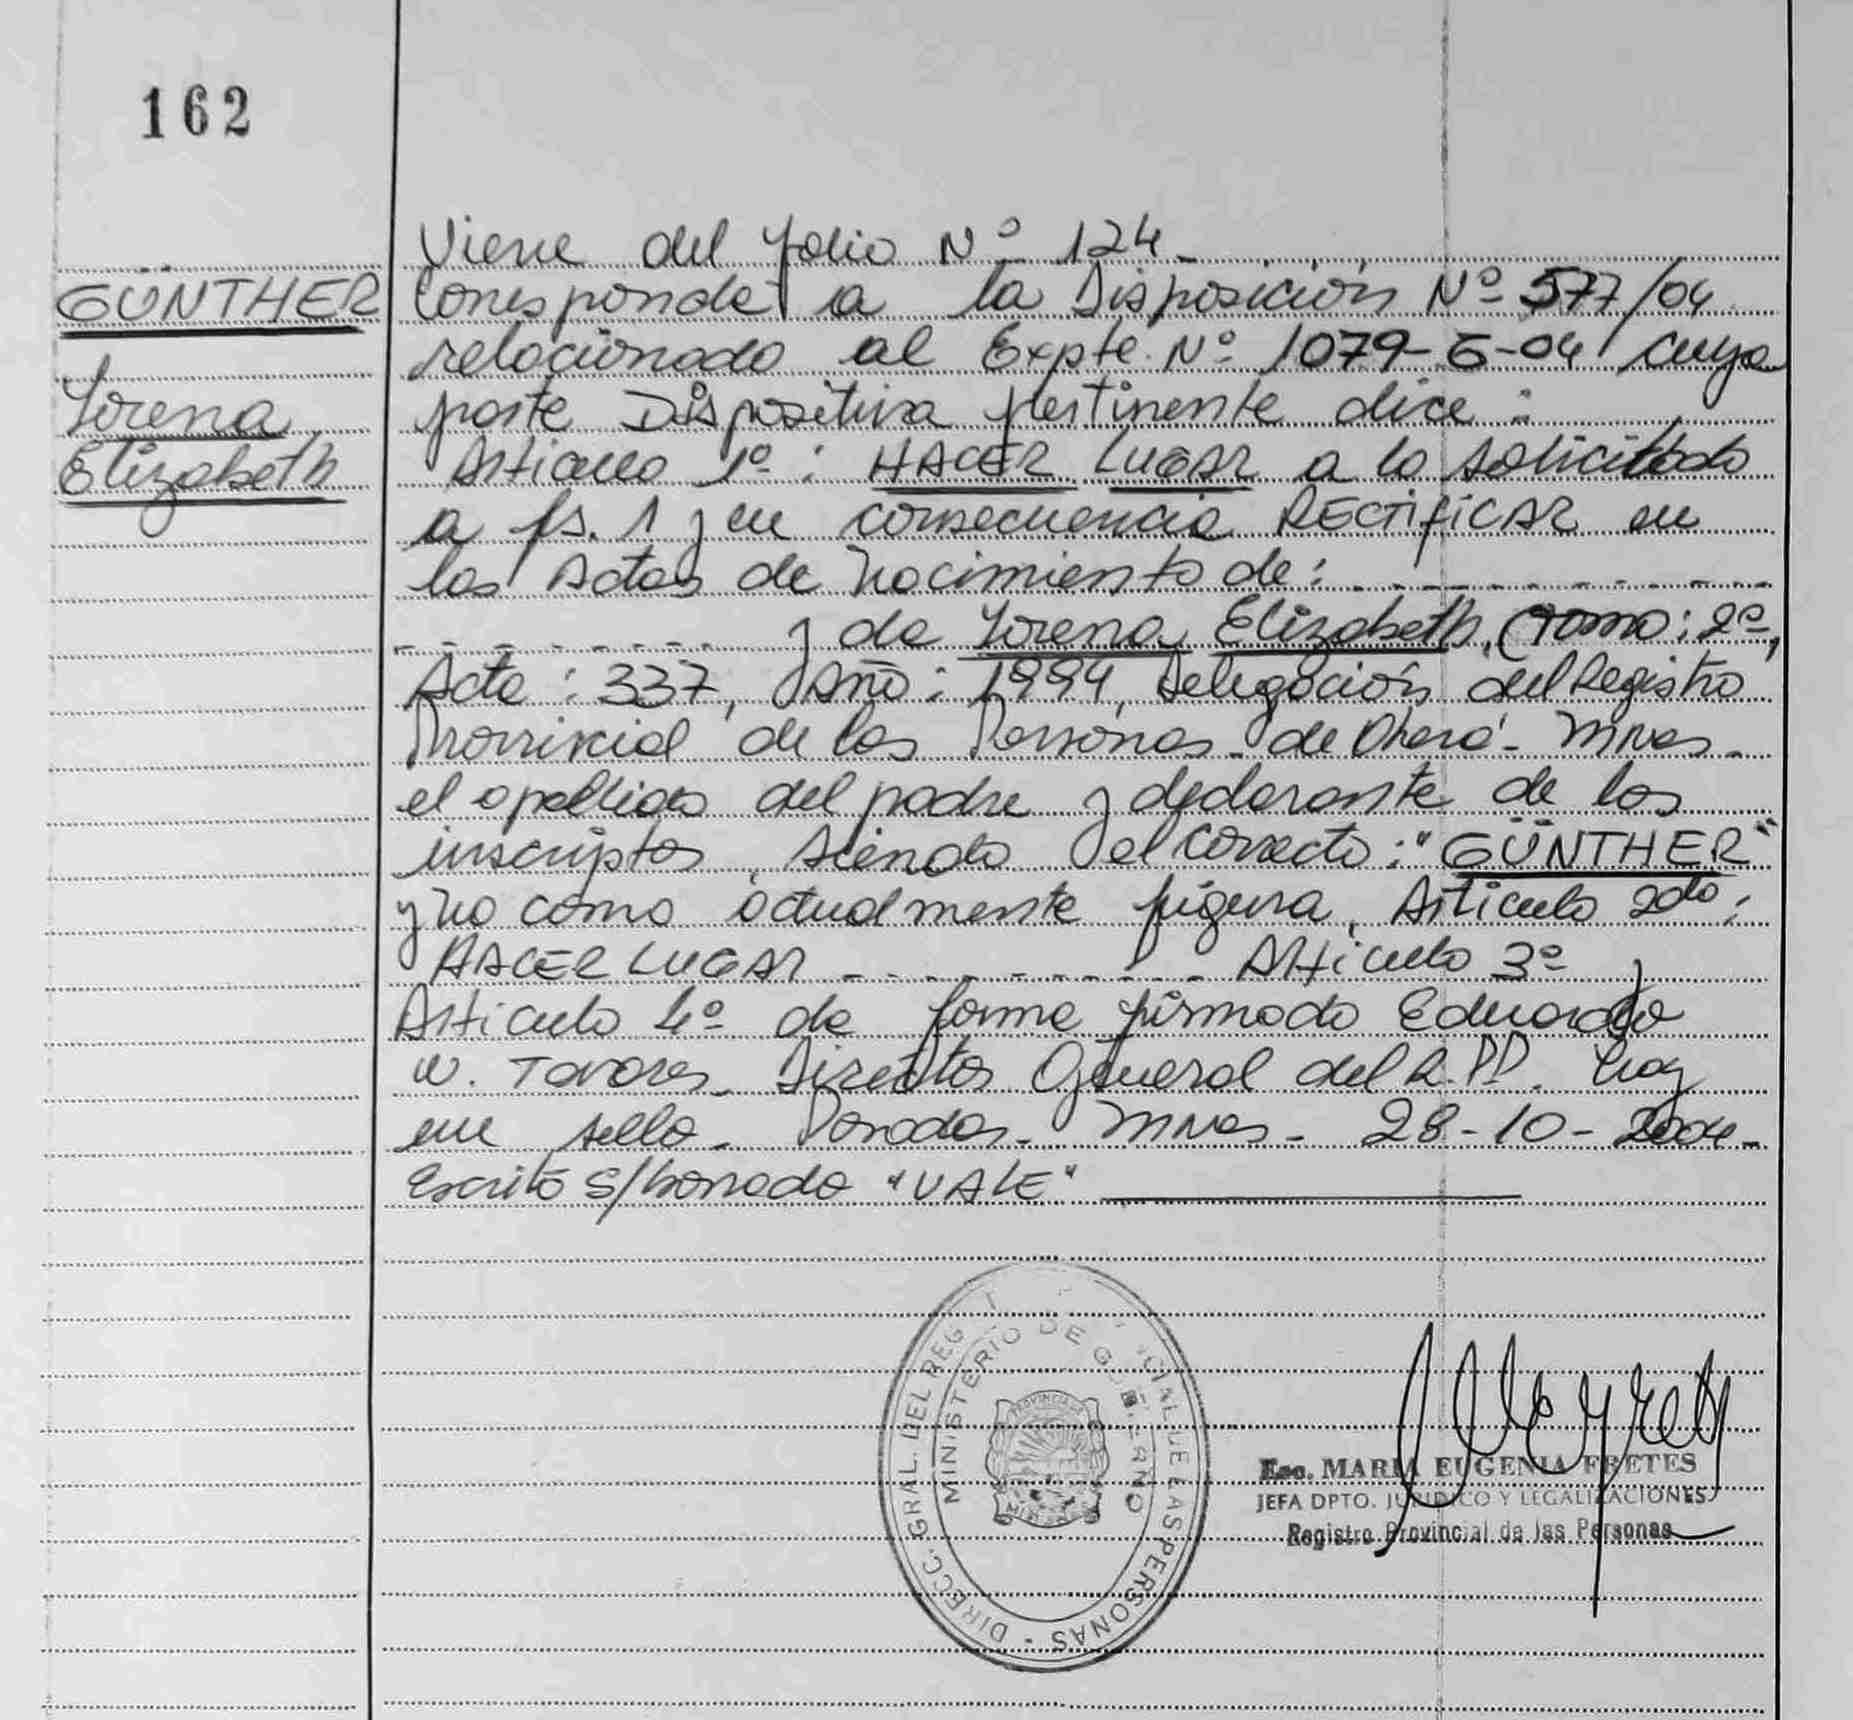 162
GÜNTHER
Lorena
Elizabeth
Viene del folio Nº 124-
Corresponde a la Disposición Nº 577/04
relacionado al Expte. Nº 1079-G-04 cuya
parte Dispositiva pertinente dice:
Articulo 1º: HACER LUGAR a lo solicitado
a fs. 1 y en consecuencia RECTIFICAR en
las Actas de Nacimiento de:
y de Lorena Elizabeth, (Tomo: 2º,
Acta: 337, Año: 1994, Delegación del Registro
Provincial de las Personas - de Oberá - Mnes -
el apellido del padre y declarante de los
inscriptos, siendo el correcto: "GÜNTHER"
y no como actualmente figura. Articulo 2do:
HACER LUGAR - - - - - - - Articulo 3º y
Articulo 4º de forma firmado Eduardo
W. Tavares - Director General del R.P.P. hay
un sello - Posadas - Mnes - 28-10-2004-
Escrito S/borrado "VALE"
DIRECC. GRAL. DEL REG CIAL DE LAS PERSONAS -
MINISTERIO DE GOBIERNO
Esc. MARIA EUGENIA FRETES
JEFA DPTO. JURIDICO Y LEGALIZACIONES
Registro Provincial de las Personas